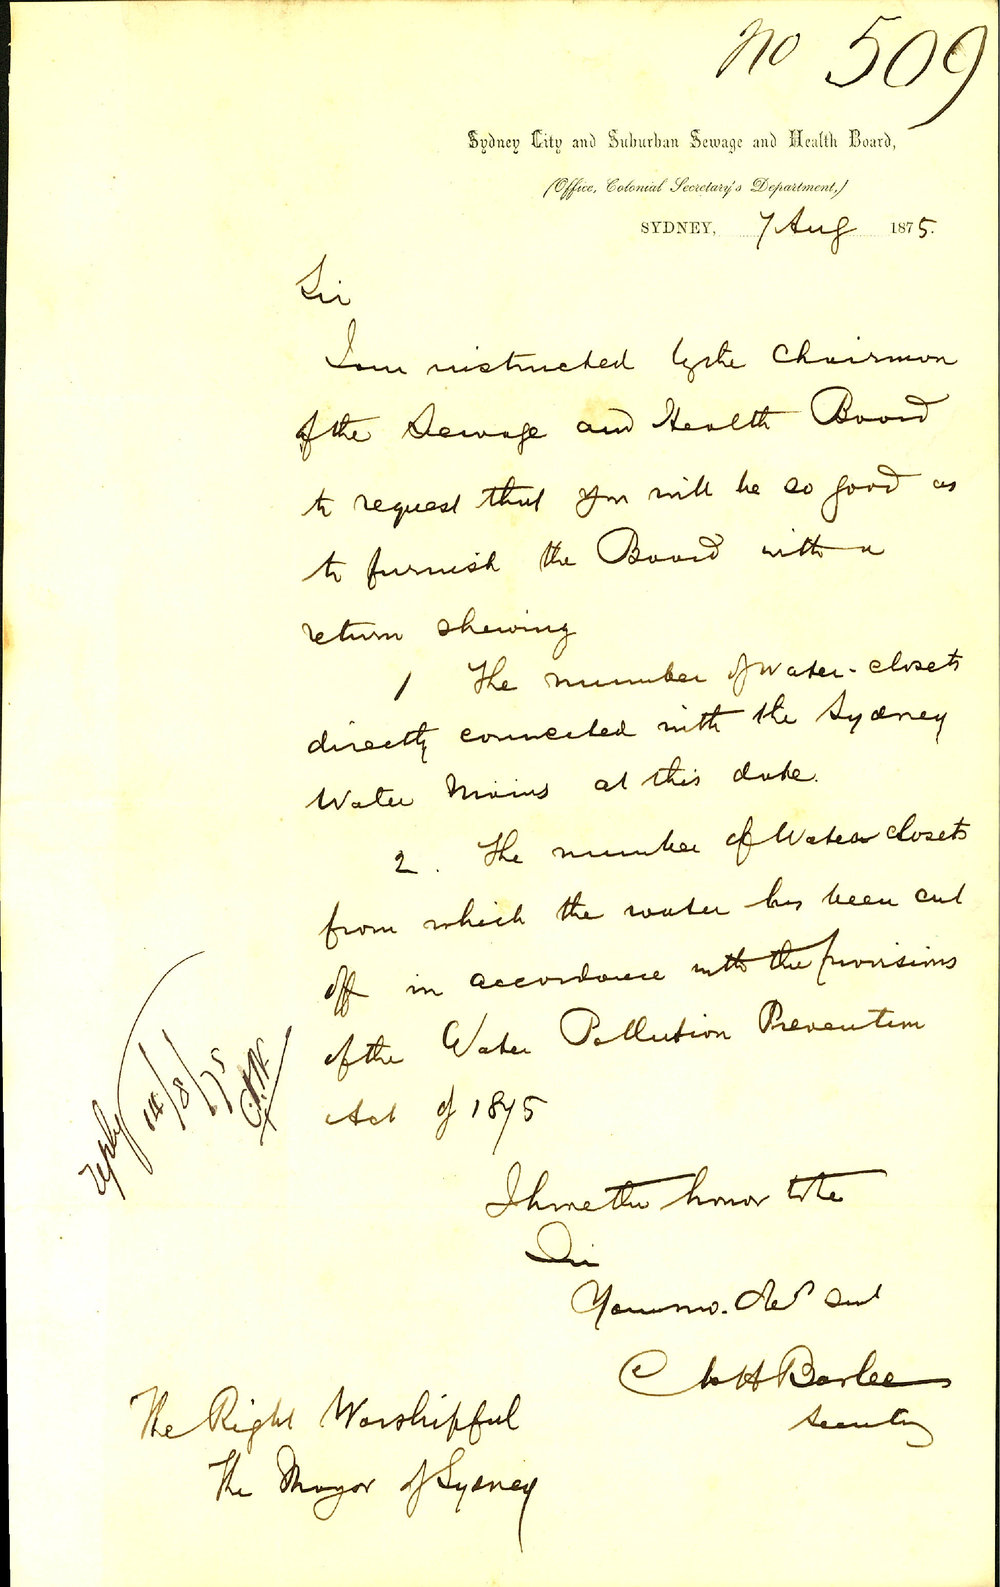 No 509
Sydney City and Suburban Sewage and Health Board,
(Office, Colonial Secretary's Department,)
SYDNEY, 7 Aug 1875.
Sir
I am instructed by the Chairman
of the Sewage and Health Board
to request that you will be so good as
to furnish the Board with a
return shewing
1 The number of water-closets
directly connected with the Sydney
Water Mains at this date.
2. The number of Water closets
from which the water has been cut
off in accordance with the provisions
of the Water Pollution Prevention
Act of 1875
I have the honor to be
Sir
Your mo. Obt Sert
Chas H Barlee
Secretary
The Right Worshipful
The Mayor of Sydney
reply 14/8/75